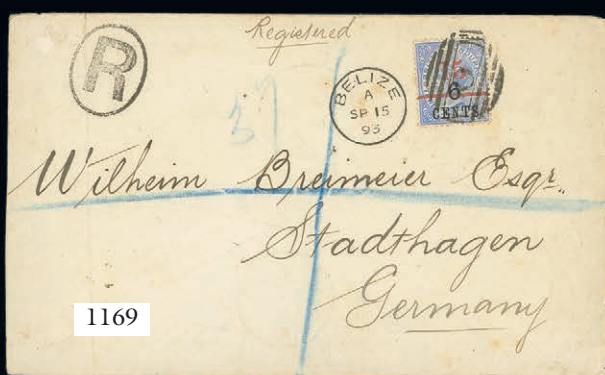 Registered
R
BELIZE
A
SP 15
93
5
6
CENTS
37
Wilheim Breimeier Esqr.
Stadthagen
Germany
1169